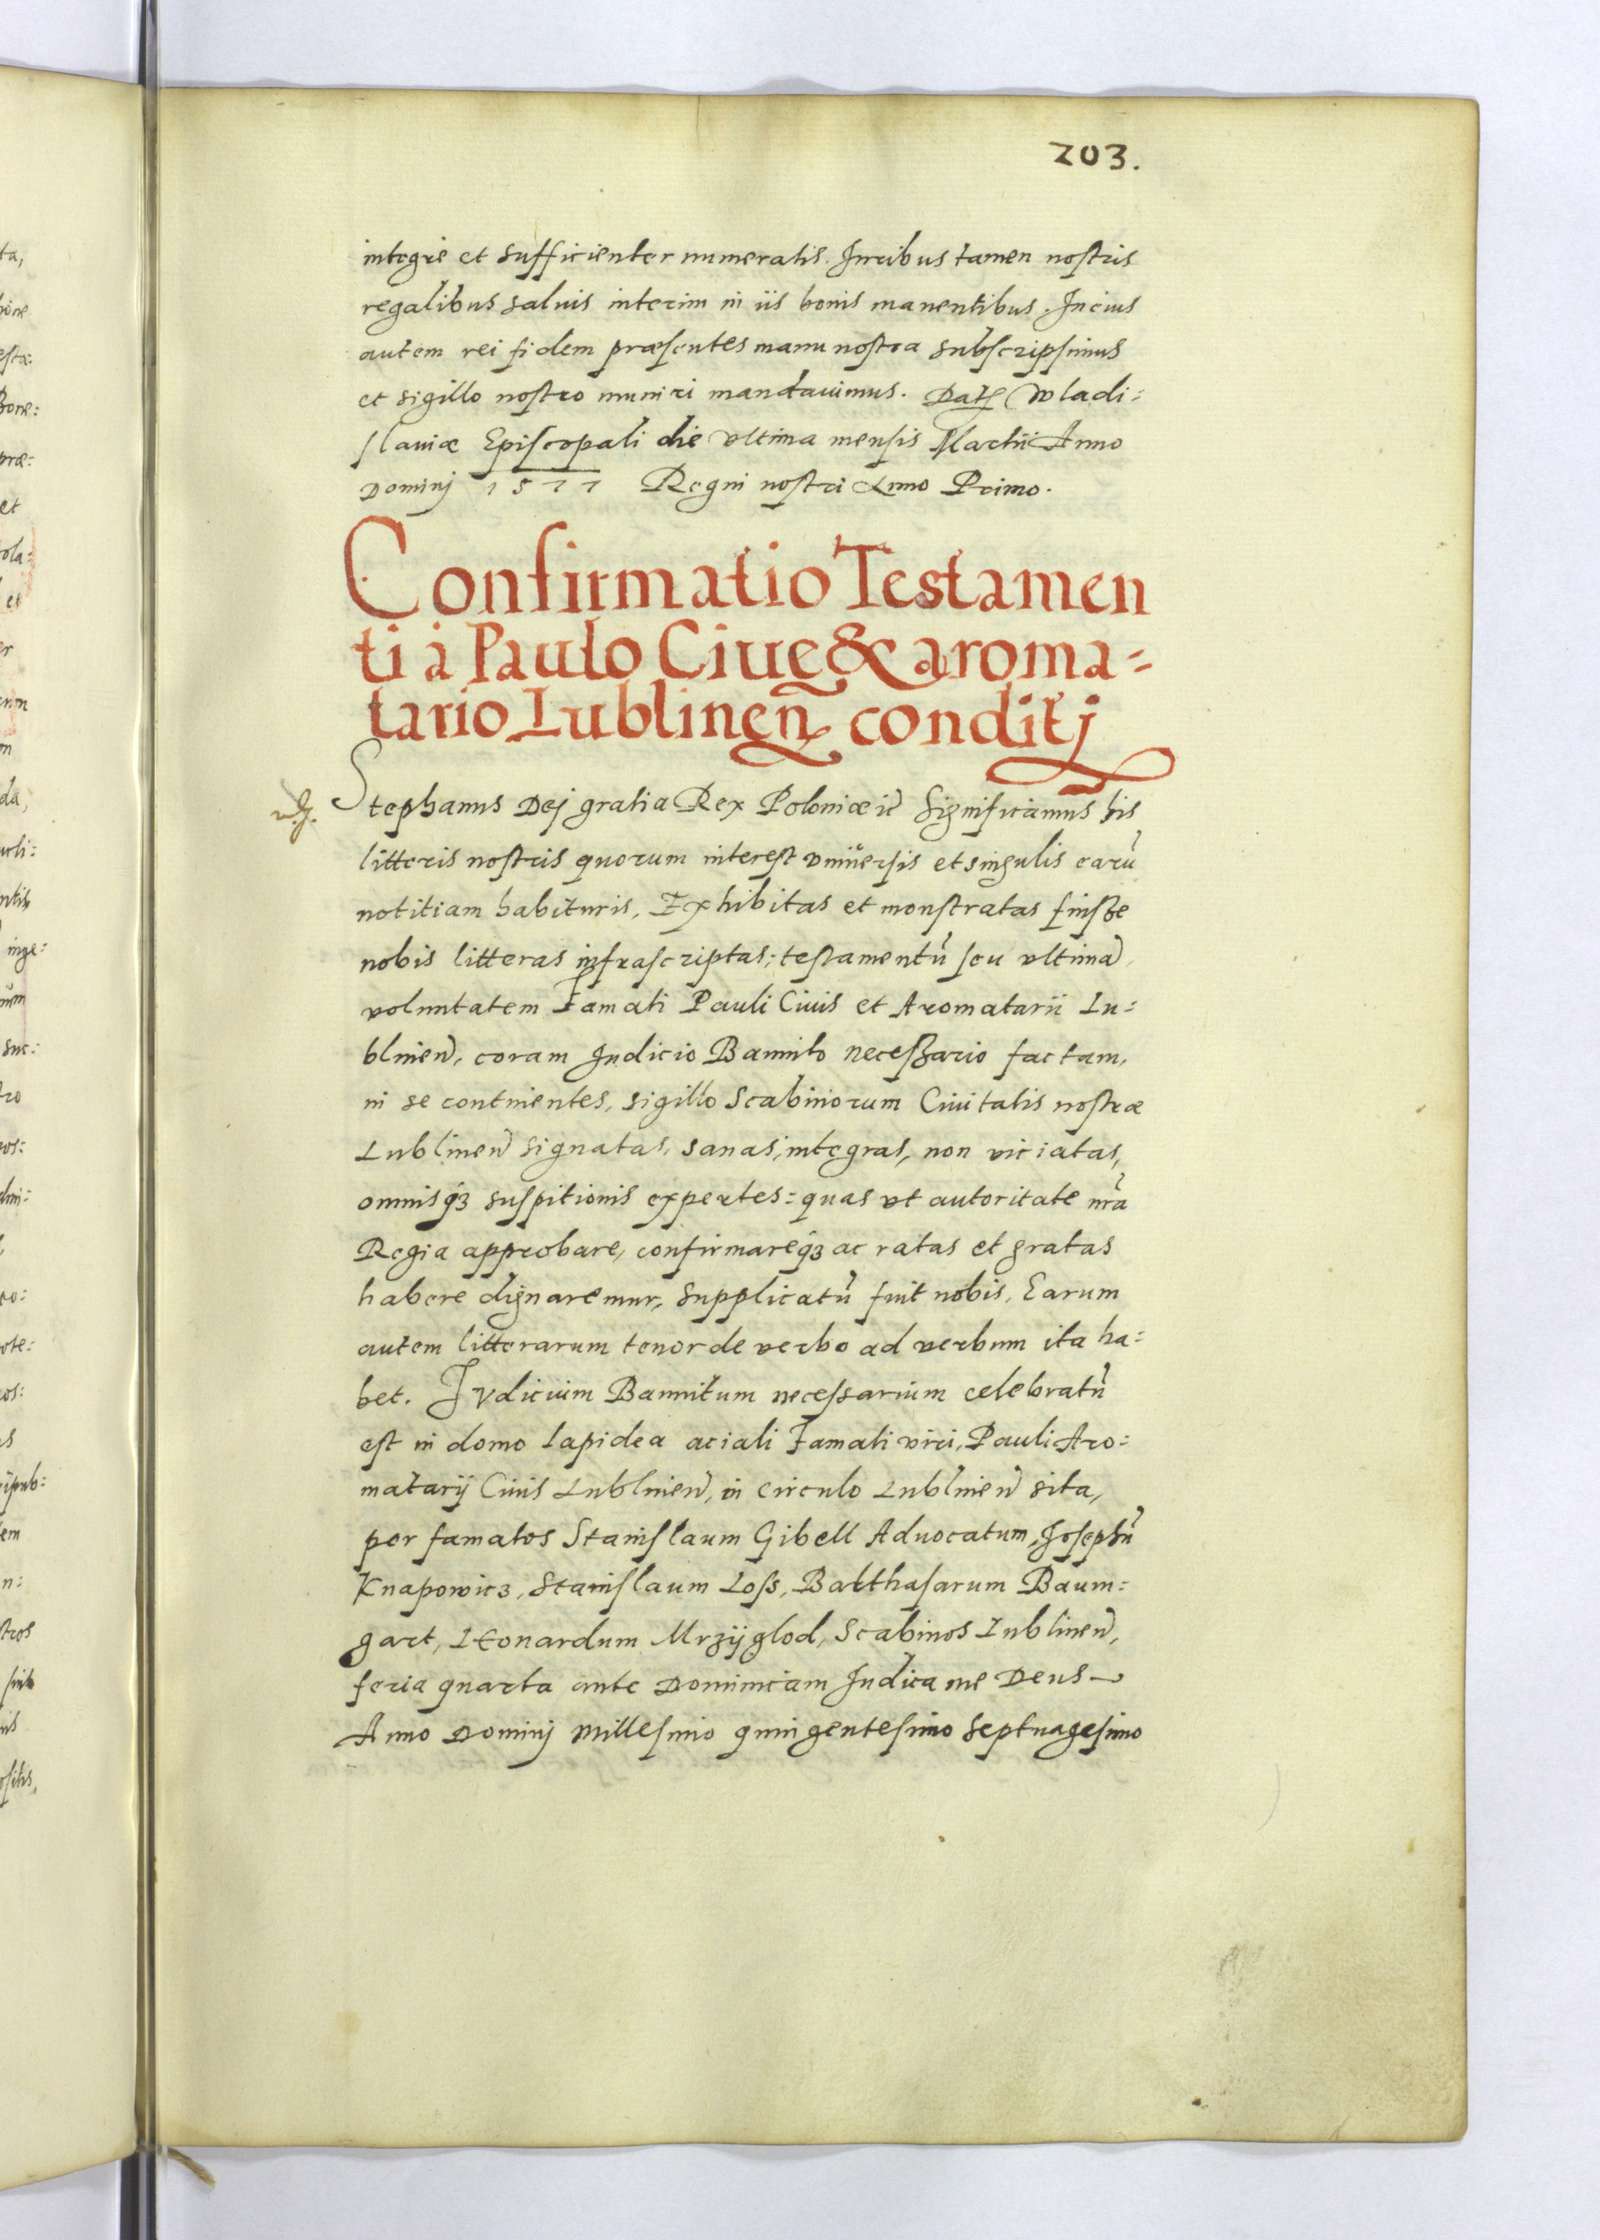 203.
integre et sufficienter numeratis. Juribus tamen nostris
regalibus saluis interim in iis bonis manentibus. In cuius
autem rei fidem præsentes manu nostra subscripsimus
et sigillo nostro muniri mandauimus. Dat Wladi:
slauiæ Episcopali die vltima mensis Martii Anno
Dominj 1577 Regni nostri Anno Primo.
Confirmatio Testamen
ti à Paulo Ciue & aroma=
tario Lublineñ conditj
Stephanus Dej gratia Rex Poloniæ ic Significamus his
litteris nostris quorum interest vniuersis et singulis earũ
notitiam habituris, Exhibitas et monstratas fuisse
nobis litteras infrascriptas; testamentũ seu vltimã
voluntatem Famati Pauli Ciuis et Aromatarii Lu:
blineñ, coram Judicio Bannito necessario factam,
in se continentes, sigillo Scabinorum Ciuitatis nostræ
Lublineñ signatas, sanas, integras, non viciatas,
omnisqз suspitionis expertes: quas vt autoritate nr̃a
Regia approbare, confirmareqз ac ratas et gratas
habere dignaremur, supplicatũ fuit nobis, Earum
autem litterarum tenor de verbo ad verbum ita ha:
bet. JVdicium Bannitum necessarium celebratũ
est in domo lapidea aciali Famati viri, Pauli Aro:
matarij Ciuis Lublineñ, in circulo Lublineñ sita,
per famatos Stanislaum Gibell Aduocatum, Josephũ
Knapowicz, Stanislaum Loss, Balthasarum Baum:
gart, Leonardum Mrzyglod, Scabinos Lublineñ,
feria quarta ante Dominicam Judica me Deus
Anno Dominj millesimo quingentesimo septuagesimo